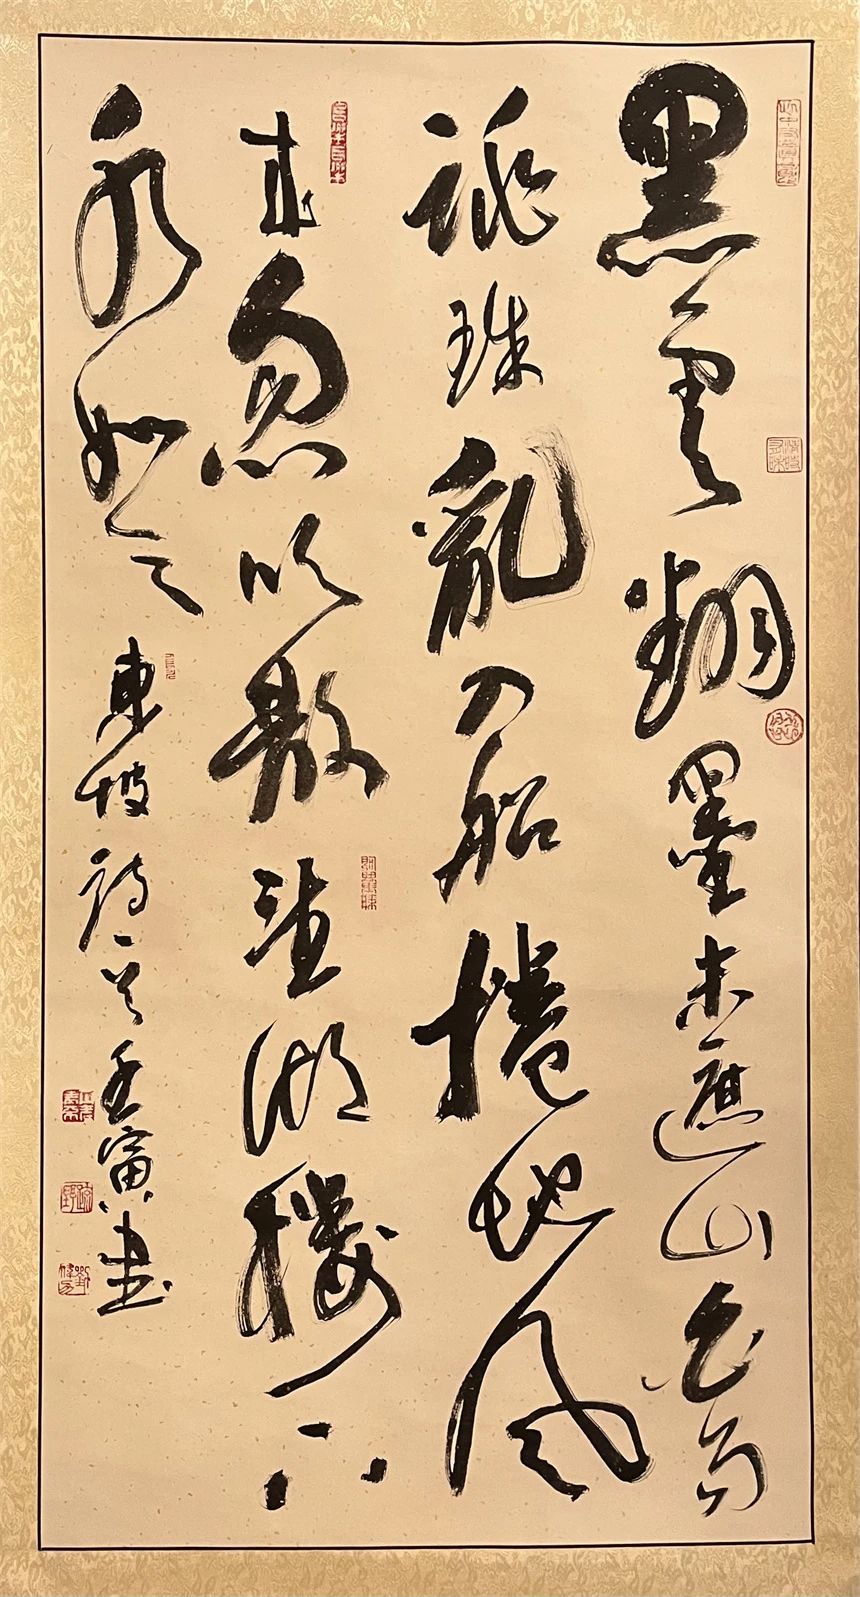 黑雲翻墨未遮山白雨
跳珠亂入船捲地風
來忽吹散望湖樓下
水如天 東坡詩一首壬寅書